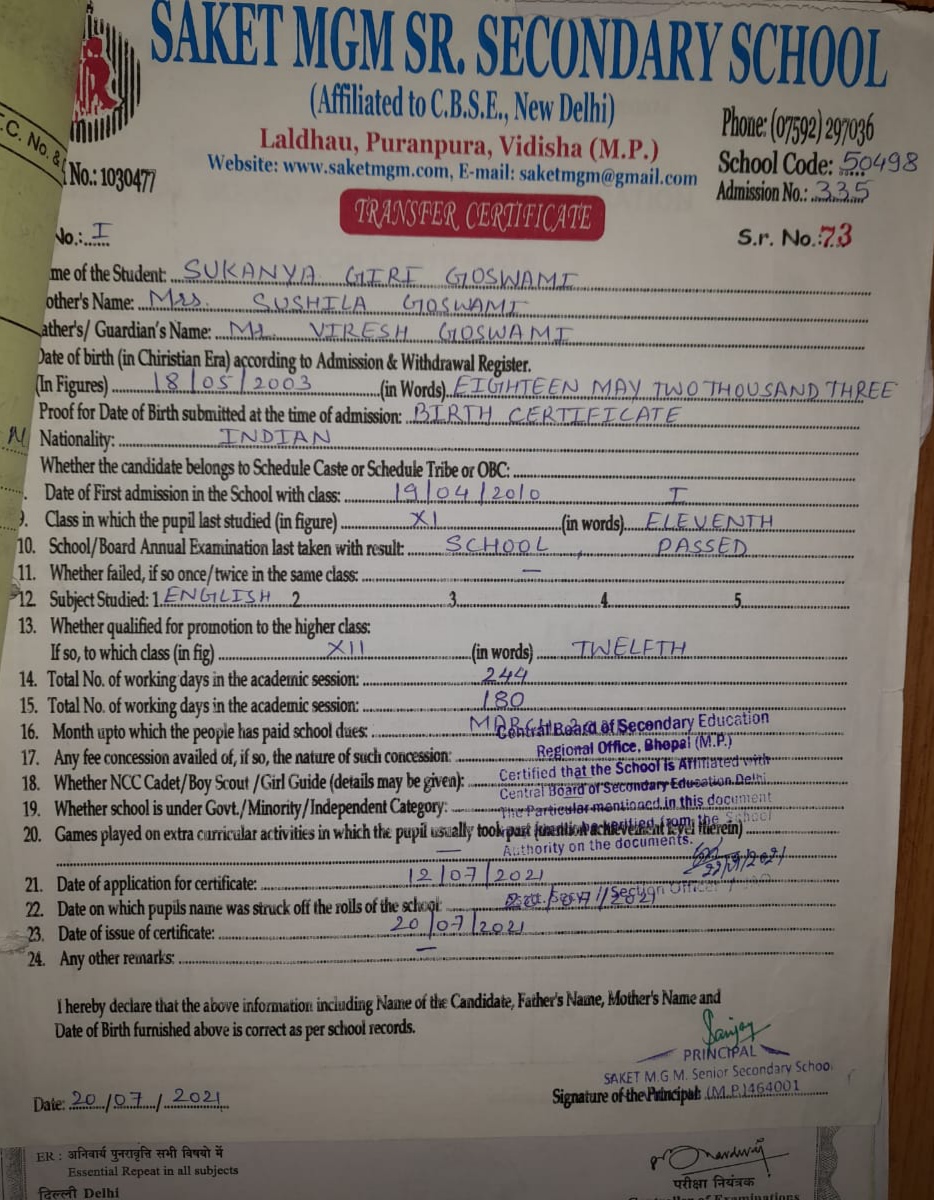 SAKET MGM SR. SECONDARY SCHOOL
(Affiliated to C.B.S.E., New Delhi)
Laldhau, Puranpura, Vidisha (M.P.)
Website: www.saketmgm.com, E-mail: saketmgm@gmail.com
Phone: (07592) 297036
School Code: 50498
Admission No.: 335
.C. No. &
No.: 1030477
TRANSFER CERTIFICATE
No.: I
S.r. No.:73
me of the Student: SUKANYA GIRI GOSWAMI
other's Name: Mrs. SUSHILA GOSWAMI
ather's/ Guardian's Name: Mr. VIRESH GOSWAMI
Date of birth (in Chiristian Era) according to Admission & Withdrawal Register.
(In Figures) 18/05/2003 (in Words) EIGHTEEN MAY TWO THOUSAND THREE
Proof for Date of Birth submitted at the time of admission: BIRTH CERTIFICATE
Nationality: INDIAN
Whether the candidate belongs to Schedule Caste or Schedule Tribe or OBC:
Date of First admission in the School with class: 19/04/2010 I
9. Class in which the pupil last studied (in figure) XI (in words) ELEVENTH
10. School/Board Annual Examination last taken with result: SCHOOL, PASSED
11. Whether failed, if so once/twice in the same class: —
12. Subject Studied: 1. ENGLISH 2. 3. 4. 5.
13. Whether qualified for promotion to the higher class:
If so, to which class (in fig) XII (in words) TWELFTH
14. Total No. of working days in the academic session: 244
15. Total No. of working days in the academic session: 180
16. Month upto which the people has paid school dues: MARCH
17. Any fee concession availed of, if so, the nature of such concession:
18. Whether NCC Cadet/Boy Scout /Girl Guide (details may be given):
19. Whether school is under Govt./Minority/Independent Category:
20. Games played on extra curricular activities in which the pupil usually took part (mention achievement level therein) —
Central Board of Secondary Education
Regional Office, Bhopal (M.P.)
Certified that the School is Affiliated with
Central Board of Secondary Education Delhi
The Particular mentioned in this document
be verified from the School
Authority on the documents.
Section Officer
21. Date of application for certificate: 12/07/2021
22. Date on which pupils name was struck off the rolls of the school:
23. Date of issue of certificate: 20/07/2021
24. Any other remarks: —
I hereby declare that the above information including Name of the Candidate, Father's Name, Mother's Name and
Date of Birth furnished above is correct as per school records.
Sanjay
PRINCIPAL
SAKET M.G.M. Senior Secondary School
(M.P.)464001
Signature of the Principal:
Date: 20/07/2021
ER : अनिवार्य पुनरावृत्ति सभी विषयो में
Essential Repeat in all subjects
दिल्ली Delhi
परीक्षा नियंत्रक
Controller of Examinations